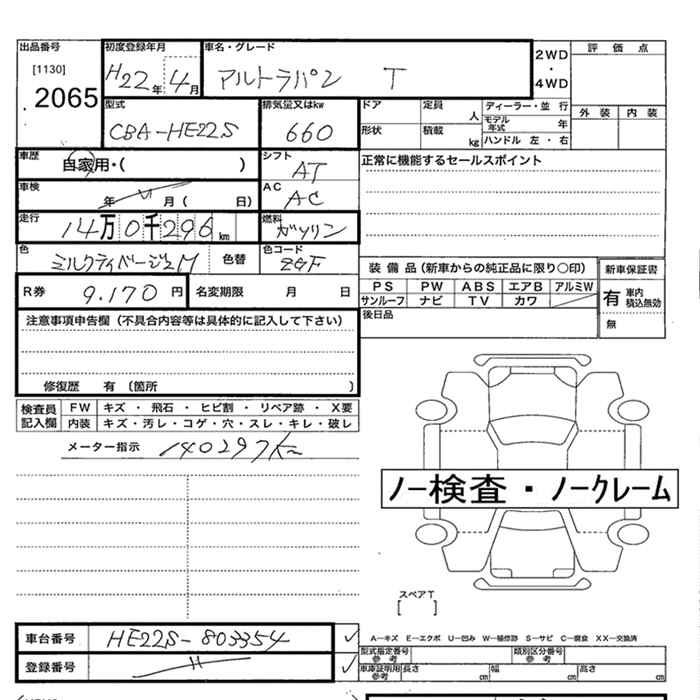 出品番号
[1130]
2065
初度登録年月
H22年 4月
車名・グレード
アルトラパン T
2WD
・
4WD
評価点
外装 内装
型式
CBA-HE22S
排気量又はkw
660
ドア 定員 人
形状 積載 kg
ディーラー・並行
モデル年式 年
ハンドル 左・右
車歴
自家用・( )
シフト
AT
正常に機能するセールスポイント
車検
年 月( 日)
AC
AC
走行
14万0千296km
燃料
ガソリン
色
ミルクティベージュM
色替
色コード
ZGF
装備品(新車からの純正品に限り○印)
PS PW ABS エアB アルミW
サンルーフ ナビ TV カワ
新車保証書
有 車内積込無効
無
R券
9.170円
名変期限 月 日
後日品
注意事項申告欄(不具合内容等は具体的に記入して下さい)
修復歴 有〔箇所 〕
検査員記入欄
FW キズ・飛石・ヒビ割・リペア跡・X要
内装 キズ・汚レ・コゲ・穴・スレ・キレ・破レ
メーター指示 140297km
ノー検査・ノークレーム
スペアT
[ ]
車台番号
HE22S-803354
登録番号
A―キズ E―エクボ U―凹み W―補修跡 S―サビ C―腐食 XX―交換済
型式指定番号 参考
類別区分番号 参考
車庫証明用 参考 長さ cm 幅 cm 高さ cm